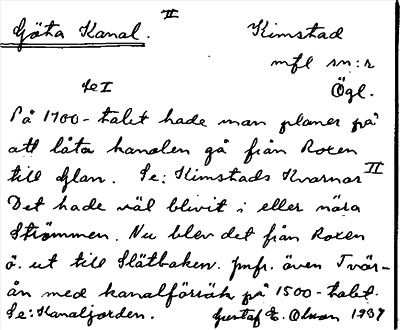 II
Göta Kanal. Kimstad
mfl sn:r
se I Ögl.
På 1700-talet hade man planer på
att låta kanalen gå från Roxen
till Glan. Se: Kimstads Kvarnar II
Det hade väl blivit i eller nära
Strömmen. Nu blev det från Roxen
ö. ut till Slätbaken. jmfr. även Tvär-
ån med kanalförsök på 1500-talet.
Se: Kanaljorden. Gustaf E. Olson 1937